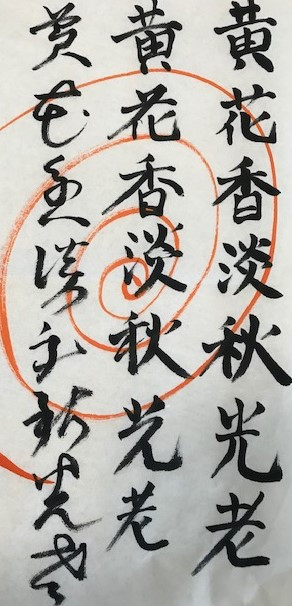 黄花香淡秋光老
黄花香淡秋光老
黄花香淡秋光老